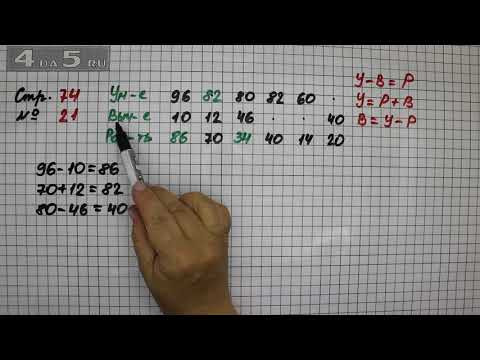 4 DA 5 RU
Стр. 74 Ум-е 96 82 80 82 60 · У-В=Р
№ 21 Выч-е 10 12 46 · · 40 У=Р+В
Раз-ть 86 70 34 40 14 20 В=У-Р
96-10=86
70+12=82
80-46=40